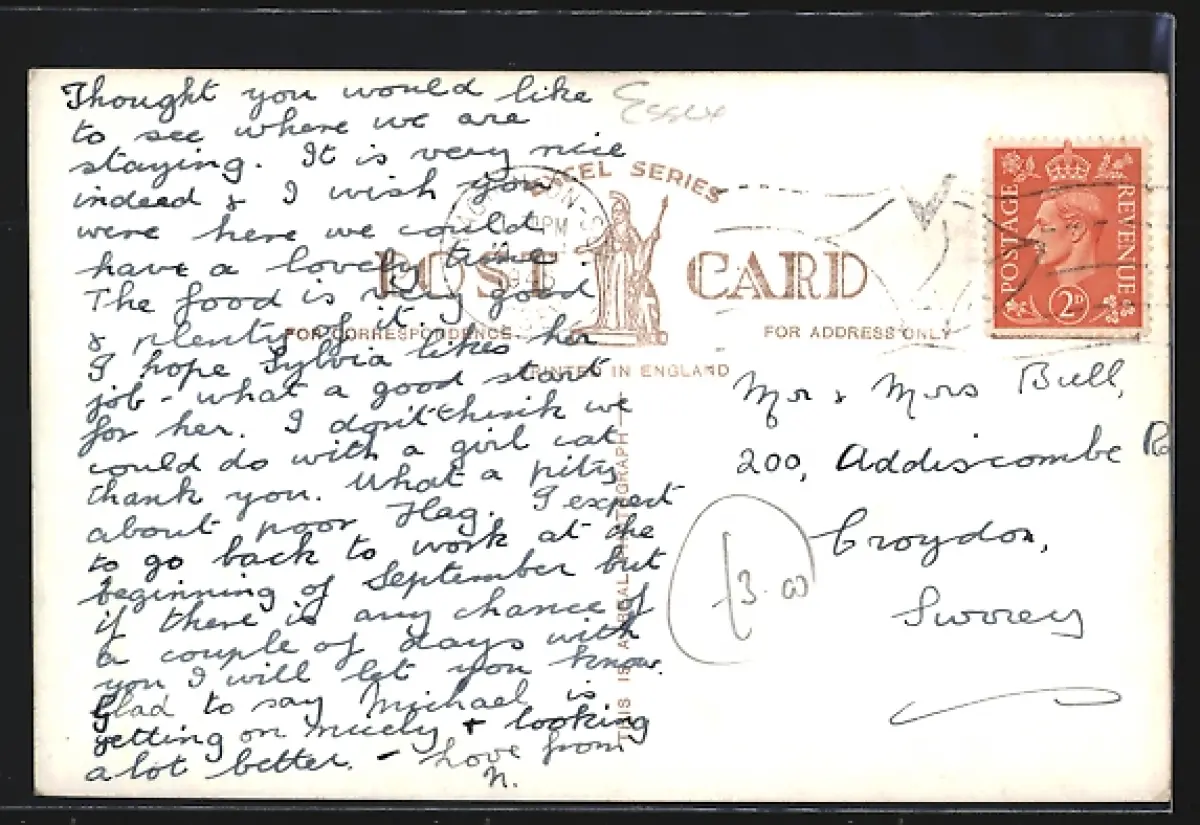 Thought you would like
to see where we are
staying. It is very nice
indeed & I wish you
were here we could
have a lovely time.
The food is very good
& plenty of it.
I hope Sylvia likes her
job - what a good start
for her. I don't think we
could do with a girl cat
thank you. What a pity
about poor Flag. I expect
to go back to work at the
beginning of September but
if there is any chance of
a couple of days with
you I will let you know.
Glad to say Michael is
getting on nicely & looking
a lot better. - Love from
N.
Essex
SERIES
POST CARD
FOR CORRESPONDENCE
FOR ADDRESS ONLY
PRINTED IN ENGLAND
THIS IS A REAL PHOTOGRAPH
POSTAGE
REVENUE
2D
PM
Mr & Mrs Bull,
200, Addiscombe R
Croydon,
Surrey
£3.00